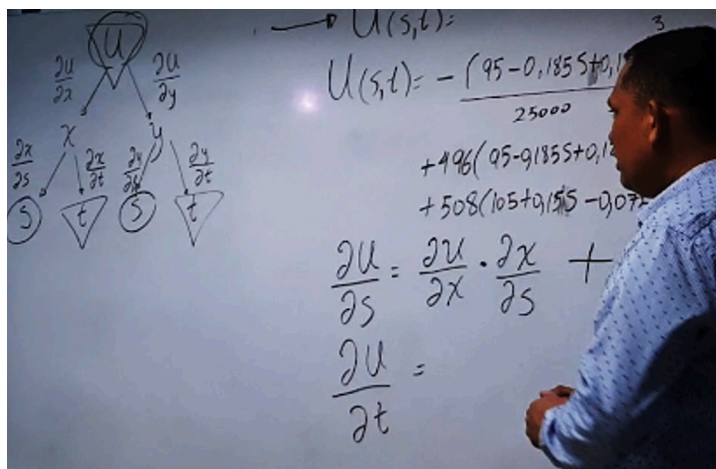 U
∂U/∂x ∂U/∂y
x y
∂x/∂s ∂x/∂t ∂y/∂s ∂y/∂t
s t s t
→ U(s,t)=
U(s,t)= -(95-0,185s+0,1 3
25000
+496(95-0,185s+0,1
+508(105+0,15s-0,07
∂U/∂s = ∂U/∂x · ∂x/∂s +
∂U/∂t =